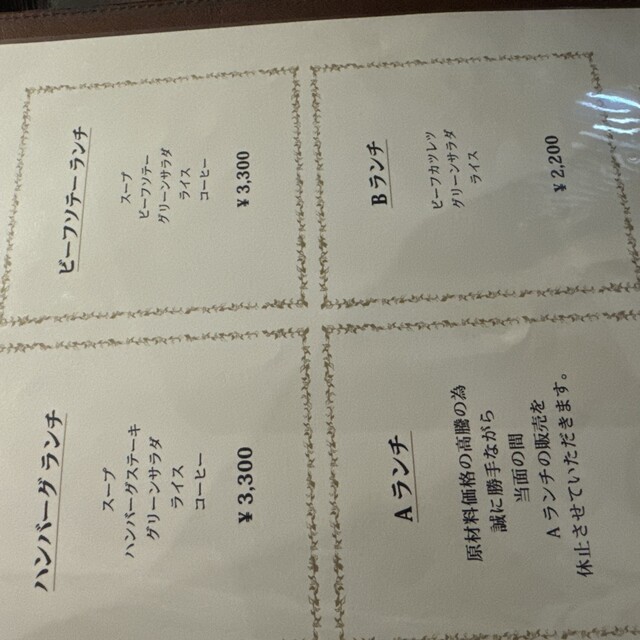 ハンバーグ ランチ
スープ
ハンバーグステーキ
グリーンサラダ
ライス
コーヒー
¥3,300
ビーフソテー ランチ
スープ
ビーフソテー
グリーンサラダ
ライス
コーヒー
¥3,300
A ランチ
原材料価格の高騰の為
誠に勝手ながら
当面の間
A ランチの販売を
休止させていただきます。
B ランチ
ビーフカツレツ
グリーンサラダ
ライス
¥2,200